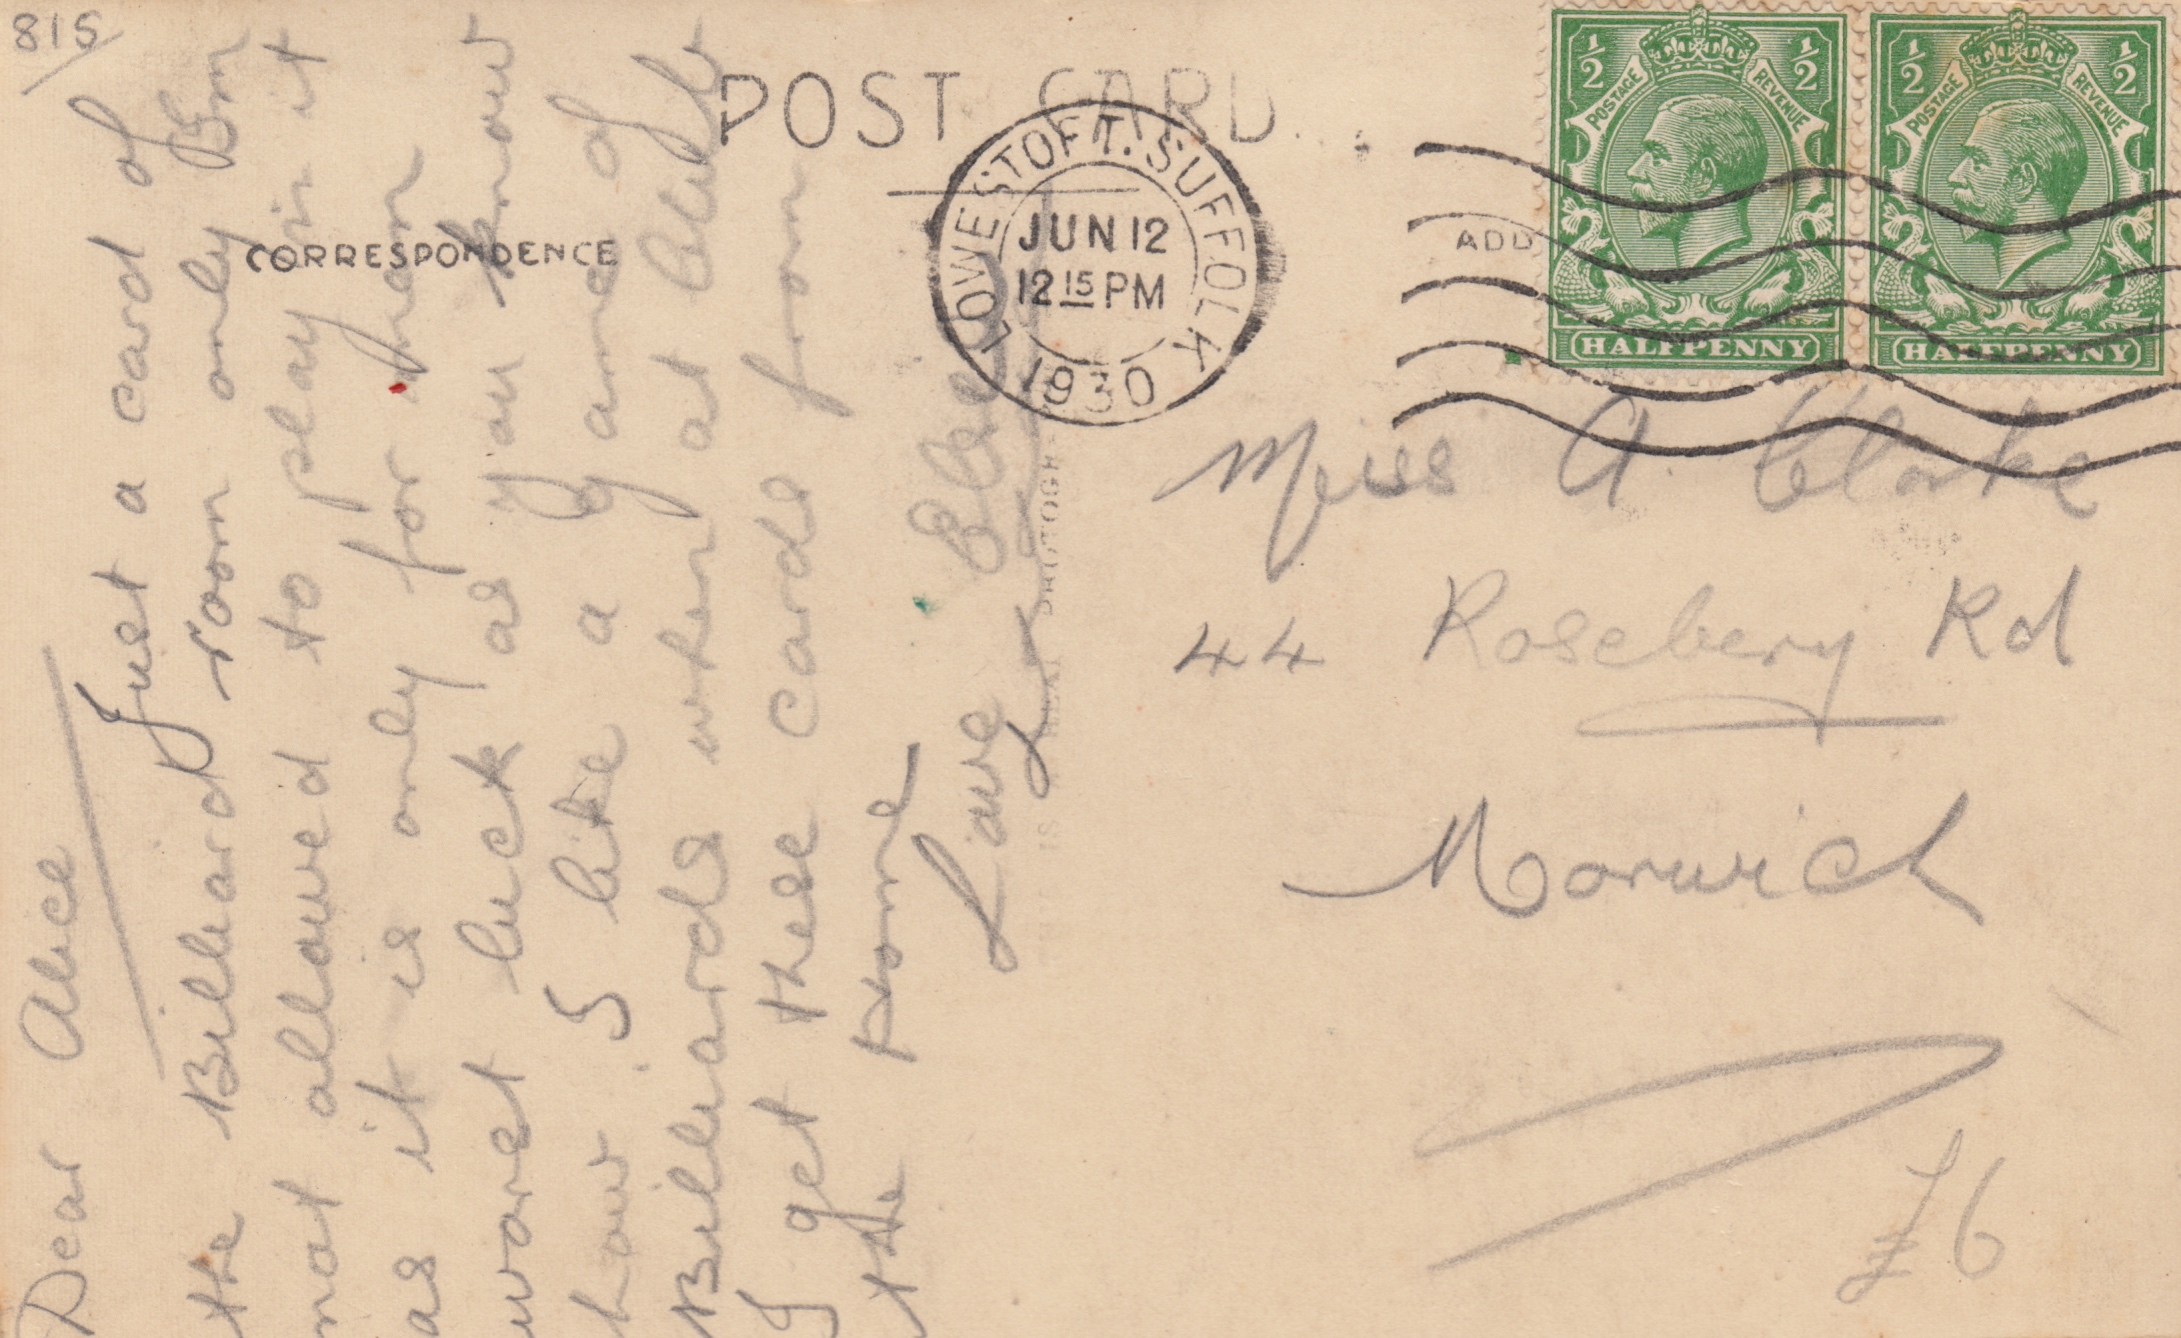 815
POST CARD
CORRESPONDENCE
ADD
Dear Alice
Just a card of
the Billiard room only
not allowed to play in it
as it is only for men
worst luck as you know
how I like a game of
Billiards when at club
I get these cards from
the Home
Love
IS A REAL PHOTOGRAPH
LOWESTOFT. SUFFOLK
JUN 12
12 15 PM
1930
½ ½
POSTAGE REVENUE
HALFPENNY
½ ½
POSTAGE REVENUE
HALFPENNY
Miss A. Clarke
44 Rosebery Rd
Norwich
£6